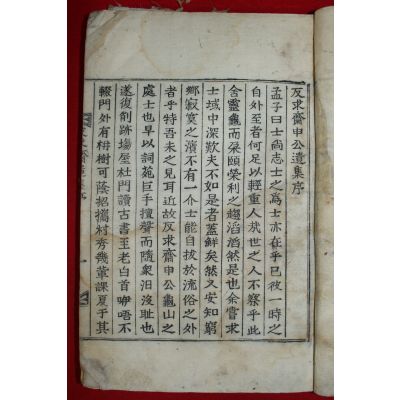 反求齋申公遺集序
孟子曰士尙志士之爲士亦在乎已彼一時之
自外至者何足以輕重人哉世之人不察乎此
舍靈龜而朶頤榮利之趨滔滔然是也余嘗求
士域中深歎夫不如是者盖鮮矣然又安知窮
鄕寂寞之濱不有一介士能自拔於流俗之外
者乎特吾未之見耳近故反求齋申公龜山之
處士也早以詞苑巨手擅聲而隨衆汨沒耻也
遂復削跡場屋杜門讀古書至老白首咿唔不
輟門外有栟樹可蔭招攜村秀幾輩課夏于其